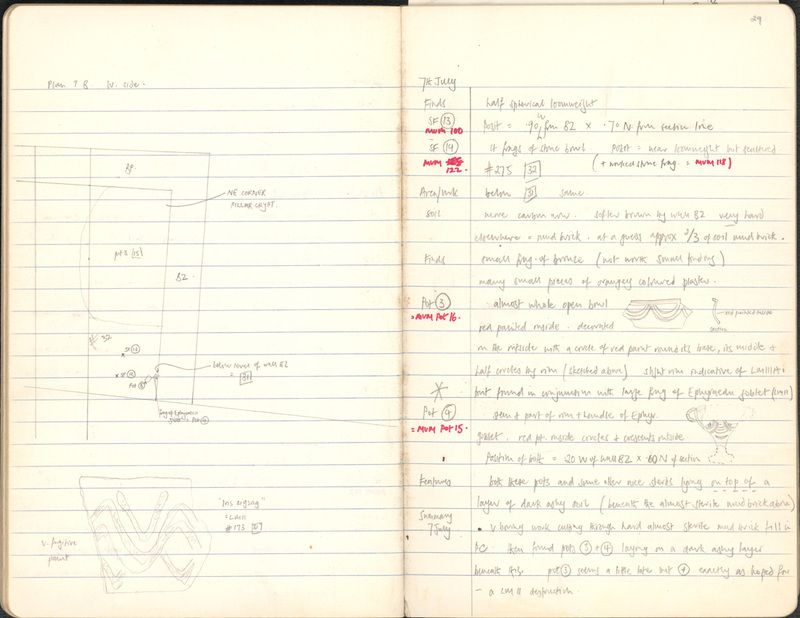 29
Plan T 8 W. side.
89
NE CORNER
PILLAR CRYPT.
82
# 32
SF 13
SF 14
Pot 3
below course of wall 82
= 31
frag of Ephyraean
goblet = Pot 4
"Iris zigzag"
= LMII
#173
v. fugitive
paint
7th July
Finds half spherical loomweight
SF 13 Posit = .90 W from 82 x .70 N from section line
MUM 100
SF 14 14 frags of stone bowl. Posit = near loomweight but scattered
MUM 122 #275 32 (+ worked stone frag. = MUM 118)
Area/Mk below 31 same.
Soil more carbon now. softer brown by wall 82 very hard
elsewhere = mud brick. at a guess approx 2/3 of soil mud brick.
Finds small frag. of bronze (not worth small finding)
many small pieces of orangey coloured plaster.
Pot 3 : almost whole open bowl
= MUM Pot 16. red painted inside. decorated
red painted inside
section
on the outside with a circle of red paint round its base, its middle &
half circles by rim (sketched above) slight rim indicative of LMIIIAi
but found in conjunction with large frag of Ephyraean goblet (LMII)
Pot 4 stem & part of rim & handle of Ephyr.
= MUM Pot 15. goblet. red pt inside circles & crescents outside
Position of both = .20 W of wall 82 x .60 N of section
Features both these pots and some other nice sherds lying on top of a
layer of dark ashy soil (beneath the almost-sterile mudbrick above)
Summary
7 July
v boring work cutting through hard almost sterile mud brick fill in
Then found pots 3 + 4 laying on a dark ashy layer
beneath this. pot 3 seems a little later but 4 exactly as hoped for
– a LM II destruction.